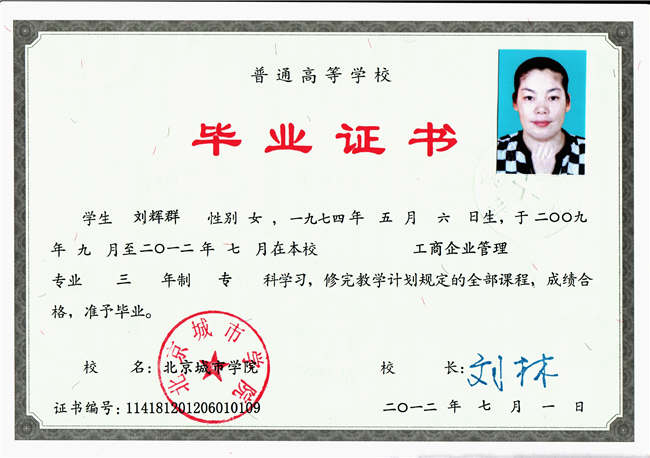 普通高等学校
毕业证书
学生 刘辉群 性别 女 ，一九七四年 五 月 六 日生，于二〇〇九
年 九 月至二〇一二年 七 月在本校 工商企业管理
专业 三 年制 专 科学习，修完教学计划规定的全部课程，成绩合
格，准予毕业。
北京城市学院
校 名：北京城市学院 校 长：刘林
证书编号：114181201206010109 二〇一二 年 七 月 一 日